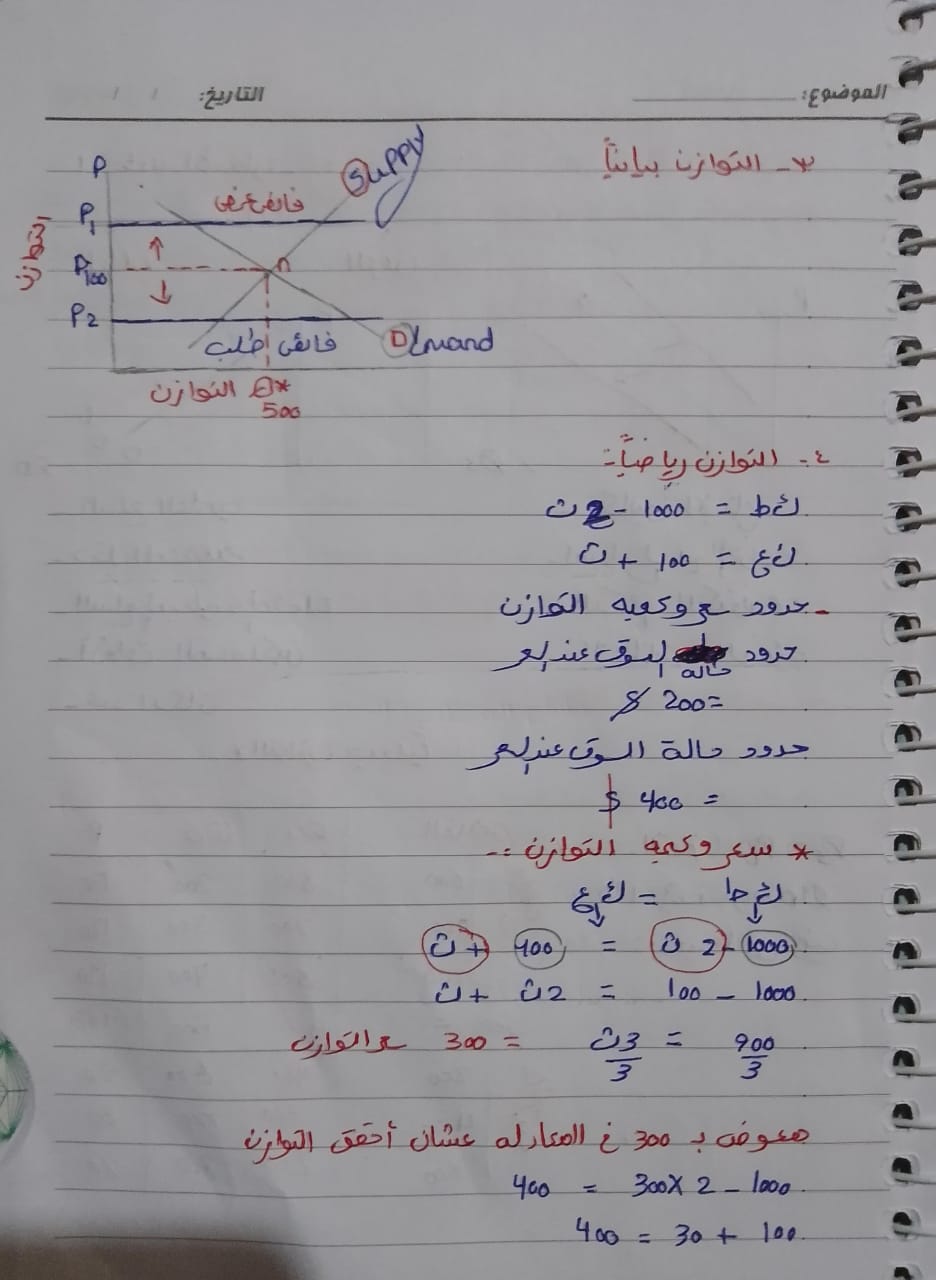 الموضوع:
التاريخ: / /
٣- التوازن بيانياً
P
Supply
P1
فائض عرض
التوازن
P100
n
P2
فائض طلب
Demand
التوازن Q*
500
٤- التوازن رياضياً:-
ك ط = 1000 - 2 ث
ك ع = 100 + ث
- حدود سعر وكميه التوازن
حدود حالة السوق عند السعر
= 200 $
حدود حالة السوق عند السعر
= 400 $
* سعر وكميه التوازن :-
ك ط = ك ع
1000 - 2 ث = 100 + ث
1000 - 100 = 2ث + ث
900/3 = 3ث/3 = 300 سعر التوازن
هعوض بـ 300 في المعادله عشان أحقق التوازن
1000 - 2 × 300 = 400
100 + 30 = 400